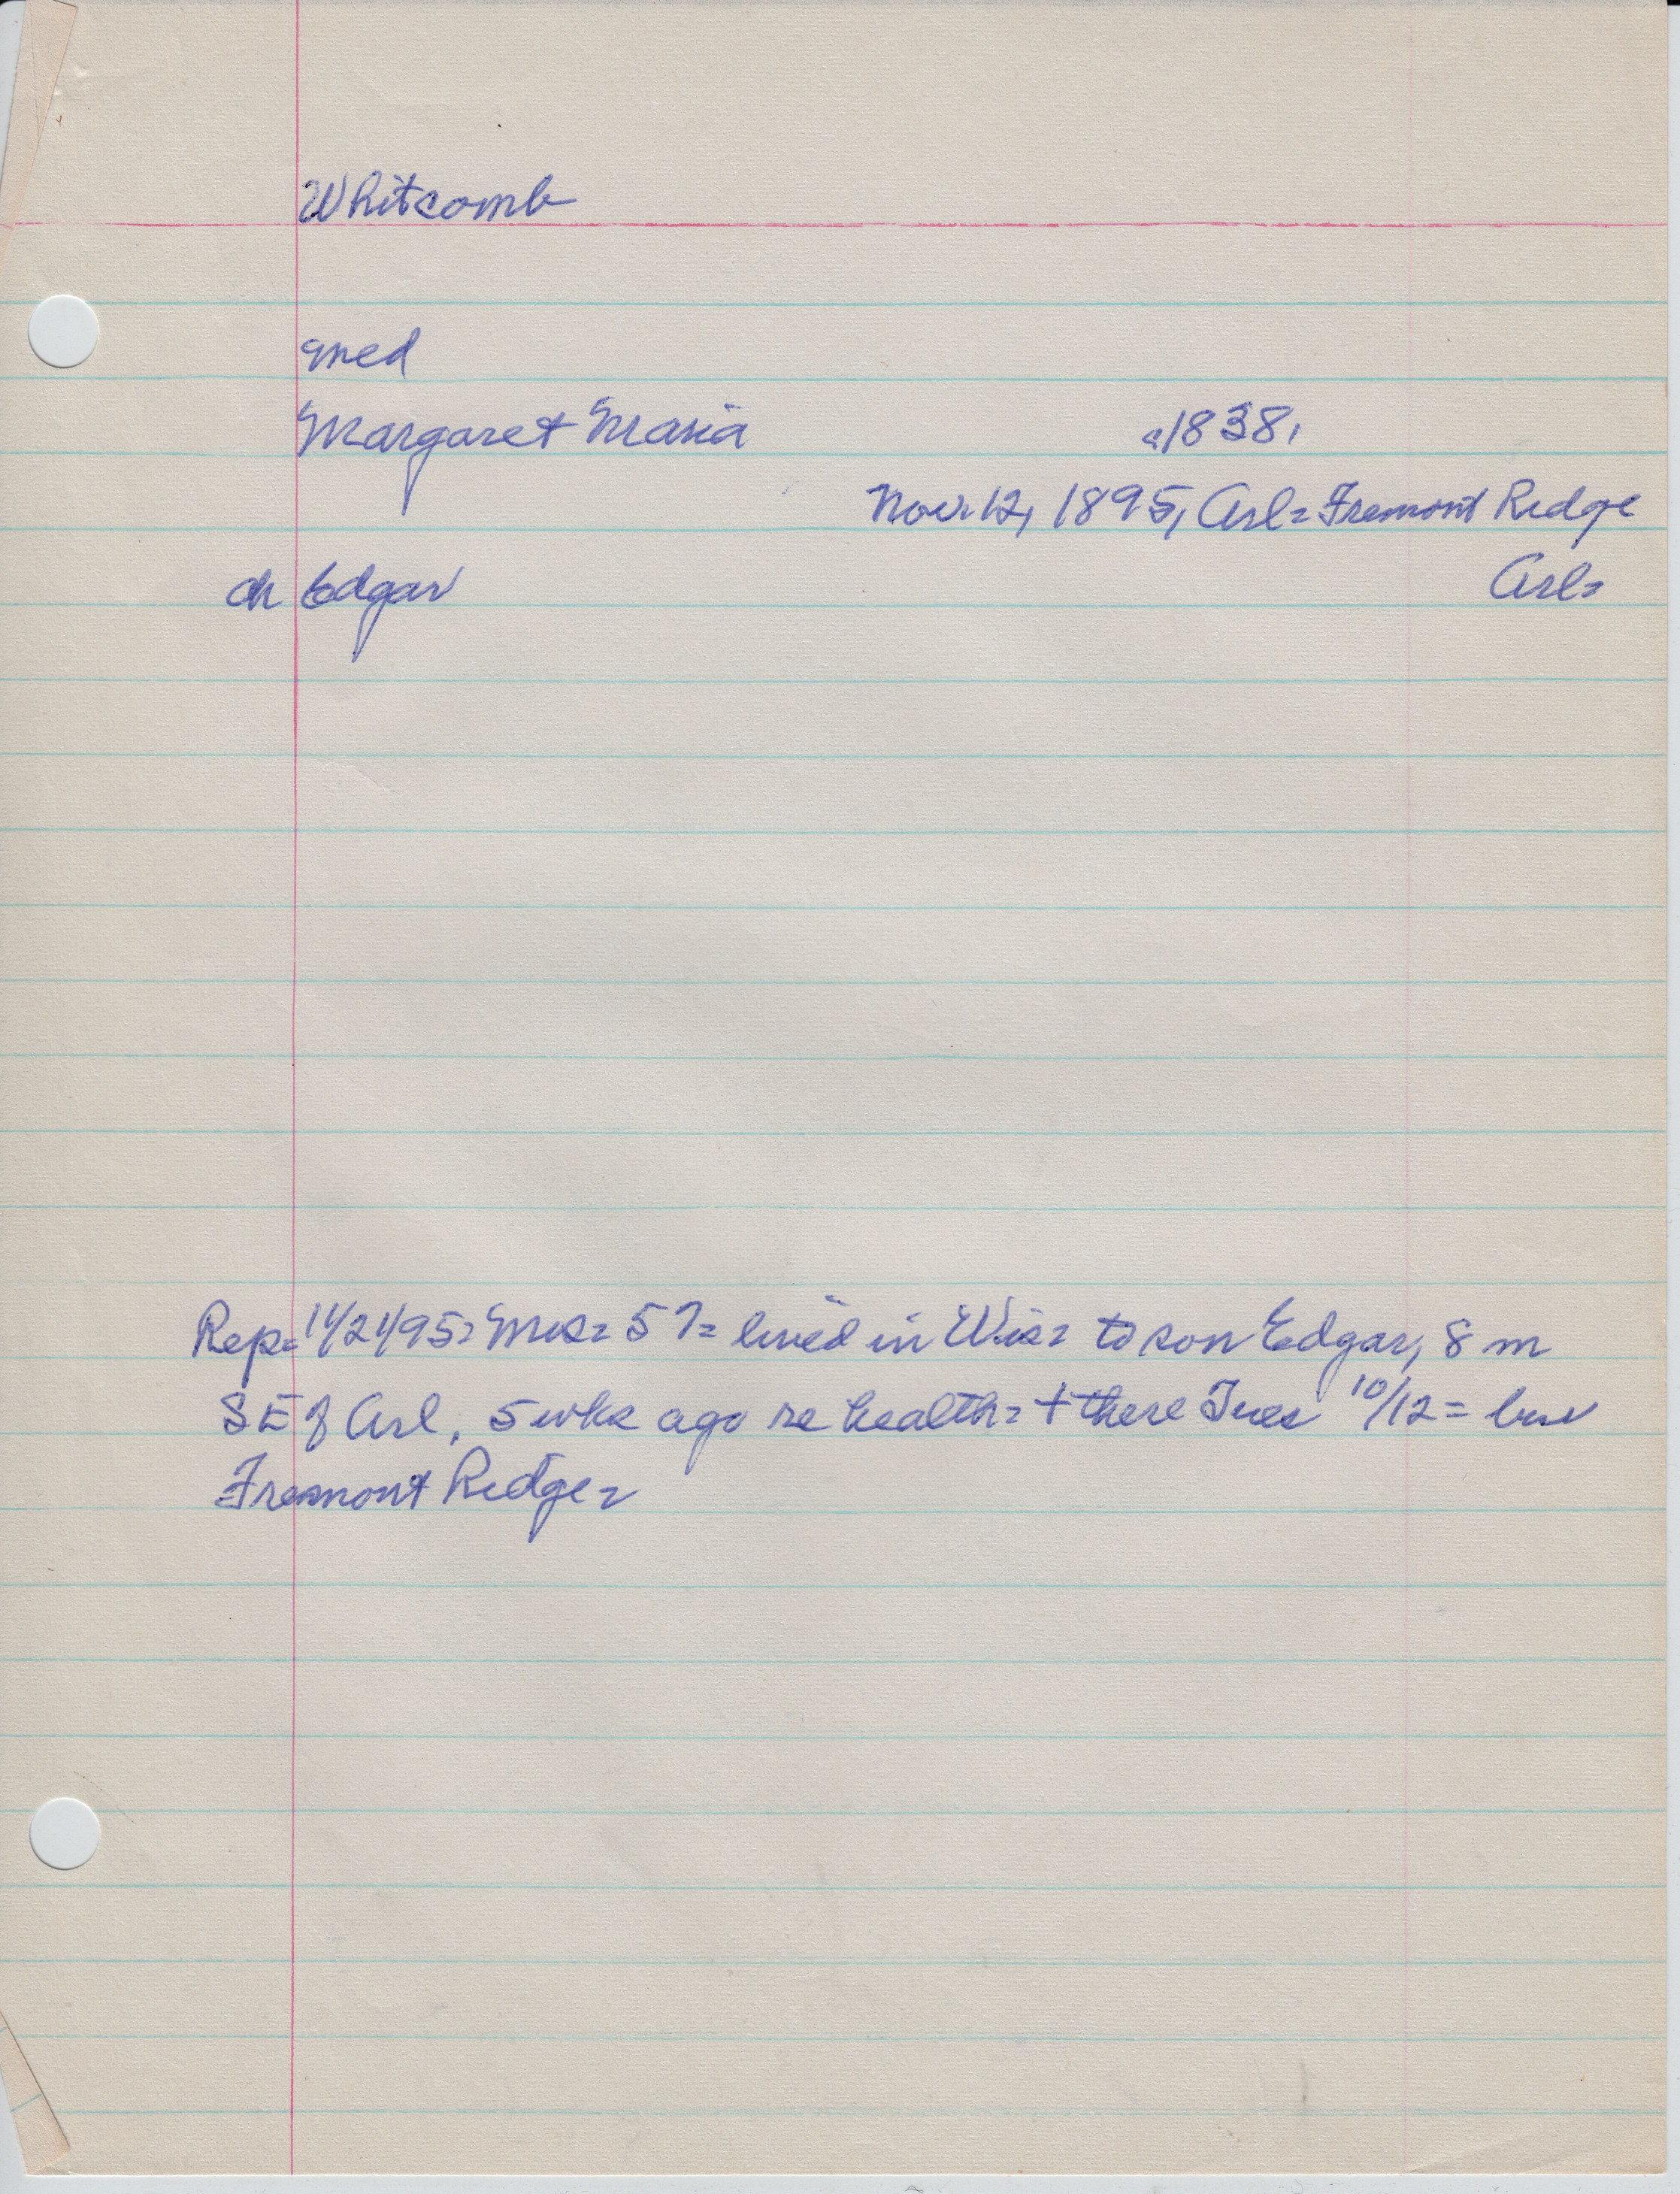 Whitcomb
med
Margaret Maria c1838,
Nov. 12, 1895, Arl= Fremont Ridge
ch Edgar Arl=
Rep= 11/21/95= Mrs= 57= lived in Wis= to son Edgar, 8 m
SE of Arl, 5 wks ago re health= + there Tues 10/12= bur
Fremont Ridge=